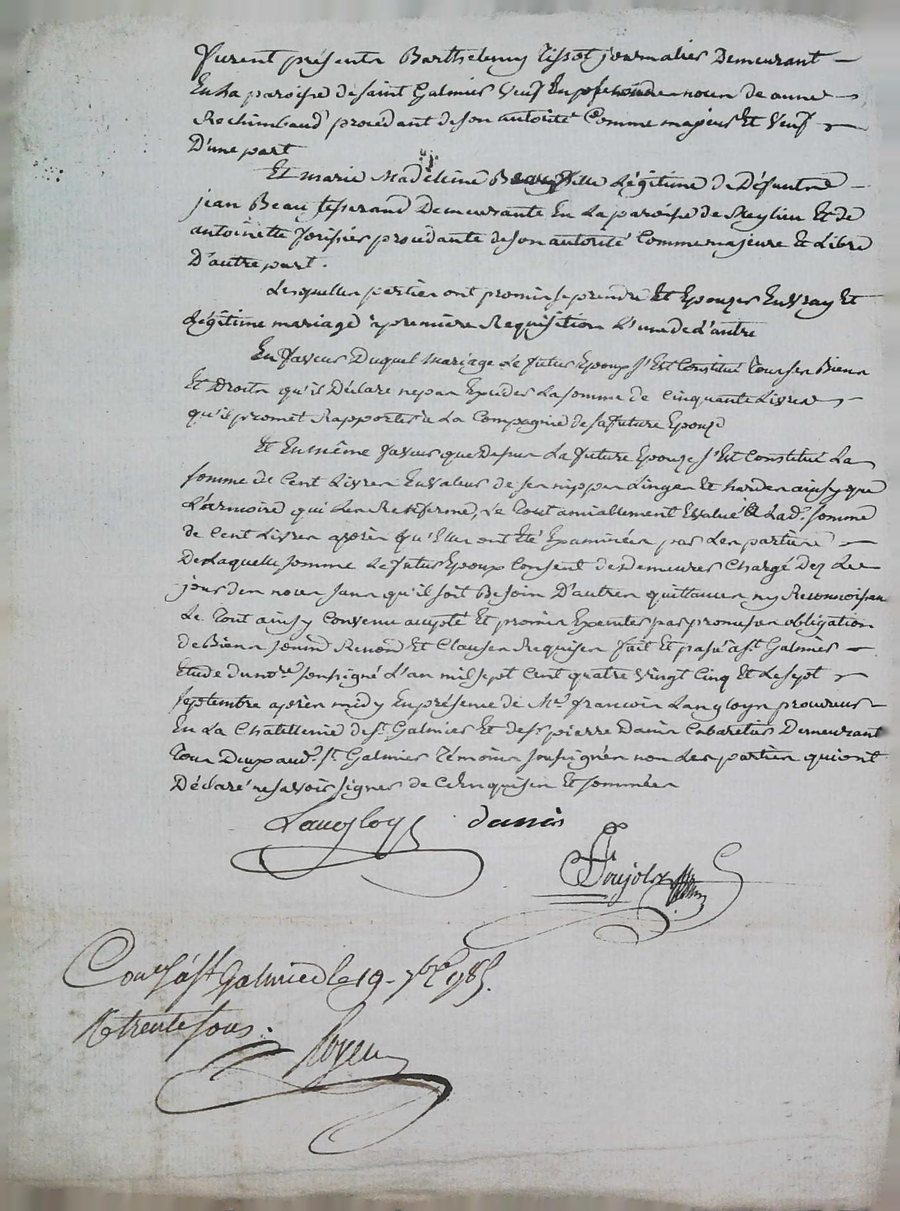 furent présents Barthelemy Tissot journalier Demeurant
En La paroisse de Saint Galmier Veuf En noces de anne
Rochimbaud procédant de son autorité Comme majeur Et Veuf
D'une part
Et marie Madeleine Beau fille Légitime de Défunt
jean Beau tisserand Demeurante En La paroisse de Meylieu Et de
antoinette forissier procédante de son autorité Comme majeure Et Libre
D'autre part.
Lesquelles parties ont promis se prendre Et Epouzer En Vray Et
Légitime mariage a première Requisition L'une de L'autre
En faveur Duquel Mariage Le futur Epoux s'Est Constitué Tous ses Biens
Et Droits qu'il Déclare ne pas Exceder La somme de Cinquante Livres
qu'il promet Rapporter a La Compagnie de sa future Epouze
Et En même faveur que Dessus La future Epouze s'Est Constitué La
somme de Cent Livres En valeur de ses nippes Linges Et hardes ainsy que
L'armoire qui Les Renferme, Le Tout amiablement Evalué a Lad.e somme
de Cent Livres après qu'Elles ont été Examinées par Les parties
De Laquelle somme Le futur Epoux Consent de Demeurer Chargé Dez Le
jour des noces sans qu'il soit Besoin D'autres quittances ny Reconnoissance
Le Tout ainsy Convenu accepté Et promis Executer par promesses obligation
de Biens soumis Renon.d Et Clauses Requises fait Et passé a S.t Galmier
Etude du no.re soussigné L'an mil sept Cent quatre Vingt Cinq Et Le sept
septembre après midy En présence de M.e françois Langloys procureur
En La Chatellenie de S.t Galmier Et de S.r pierre Danis Cabaretier Demeurant
Tous Deux aud.t S.t Galmier Témoins soussignés non Les parties qui ont
Déclaré ne savoir signer de Ce Enquises Et sommées
Langloys danis
Poujols
Con.lé à S.t Galmier le 19 7bre 1785.
R trente sous.